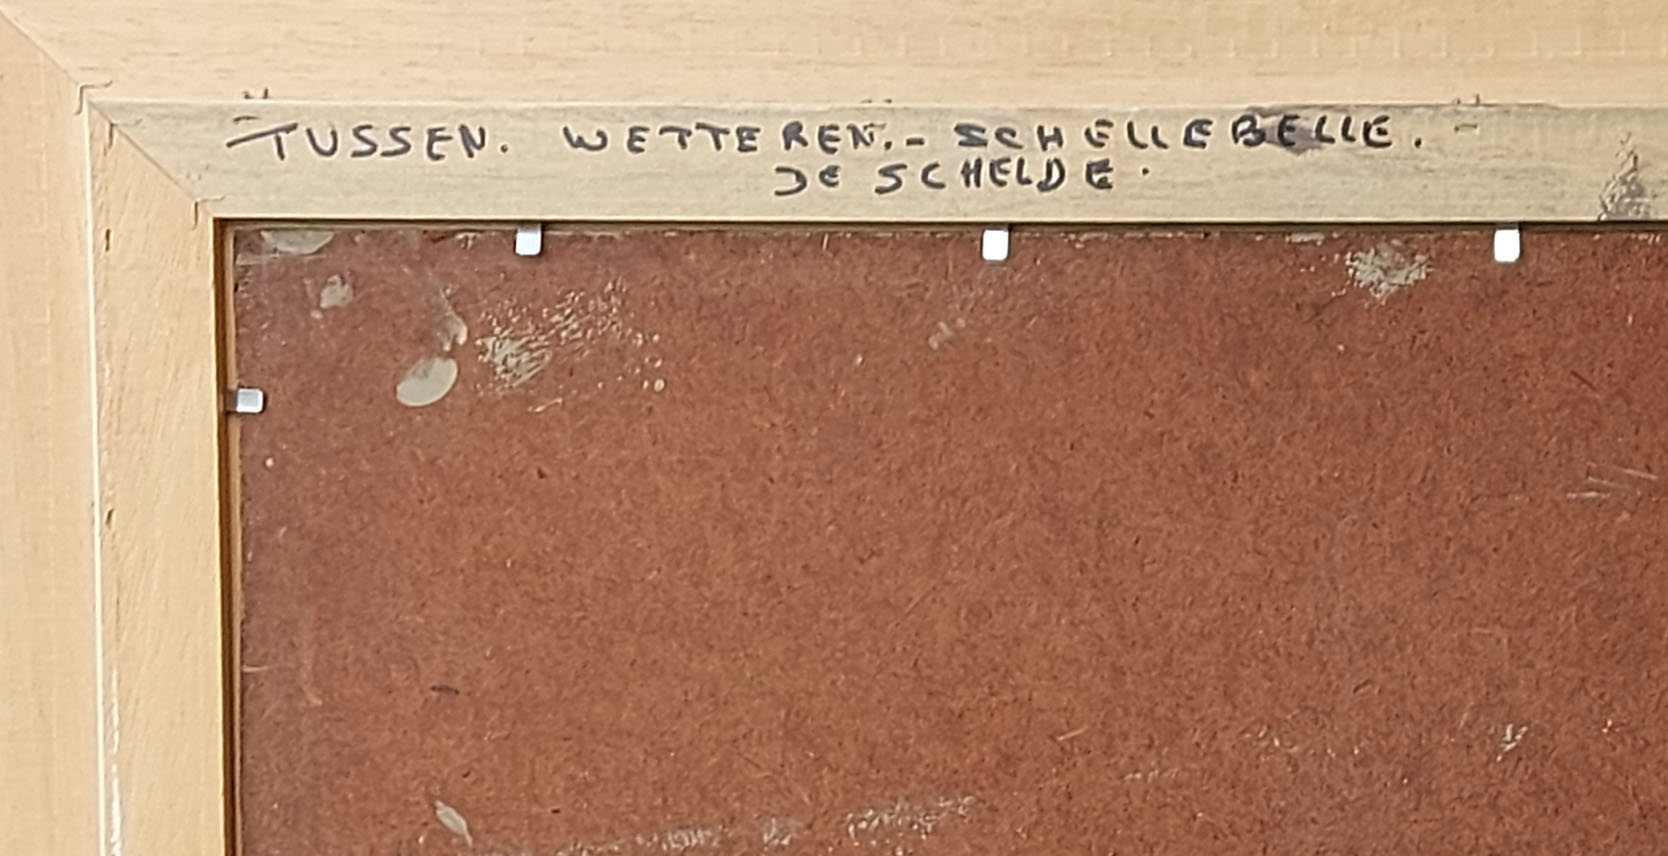 TUSSEN. WETTEREN.- SCHELLEBELLE. -
DE SCHELDE.